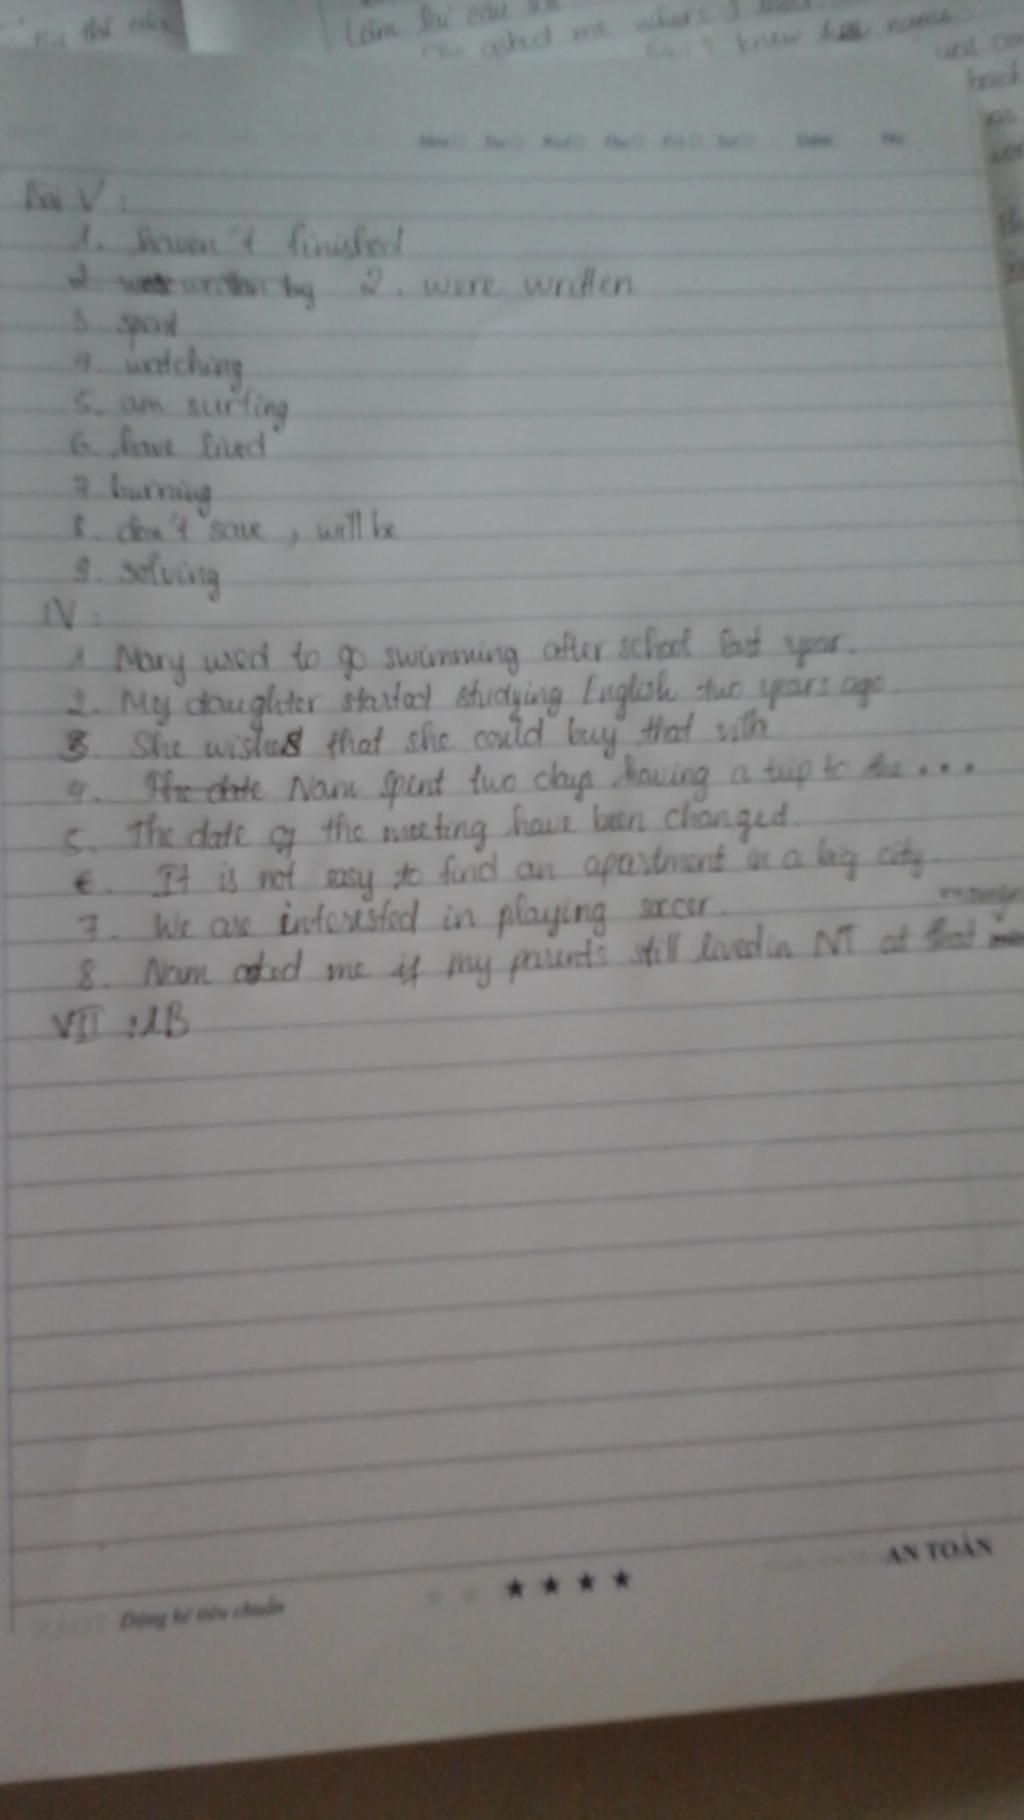 asked me where I
I knew her name
back
Bài V :
1. haven't finished
2. by 2. were written
3. spent
4. watching
5. am surfing
6. have lived
7. burning
8. don't save, will be
9. solving
IV :
1 Mary used to go swimming after school last year.
2. My daughter started studying English two years ago.
3. She wishes that she could buy that villa
4. The date Nam spent two days having a trip to the ...
5. The date of the meeting have been changed.
6. It is not easy to find an apartment in a big city.
7. We are interested in playing soccer.
8. Nam asked me if my parents still lived in NT at that
VII : 1B
AN TOÀN
★ ★ ★ ★
Dòng kẻ tiêu chuẩn